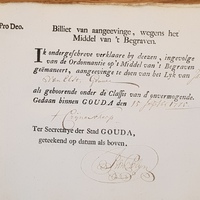 Pro Deo.
Billiet van aangeevinge, wegens het
Middel van 't Begraven.
Ik ondergeschreve verklaare by deezen, ingevolge
van de Ordonnantie op 't Middel van 't Begraven
geëmaneert, aangeevinge te doen van het Lyk van
als gehoorende onder de Classis van d'onvermogende.
Gedaan binnen GOUDA, den 15
Ter Secretarye der Stad GOUDA,
geteekend op datum als boven.